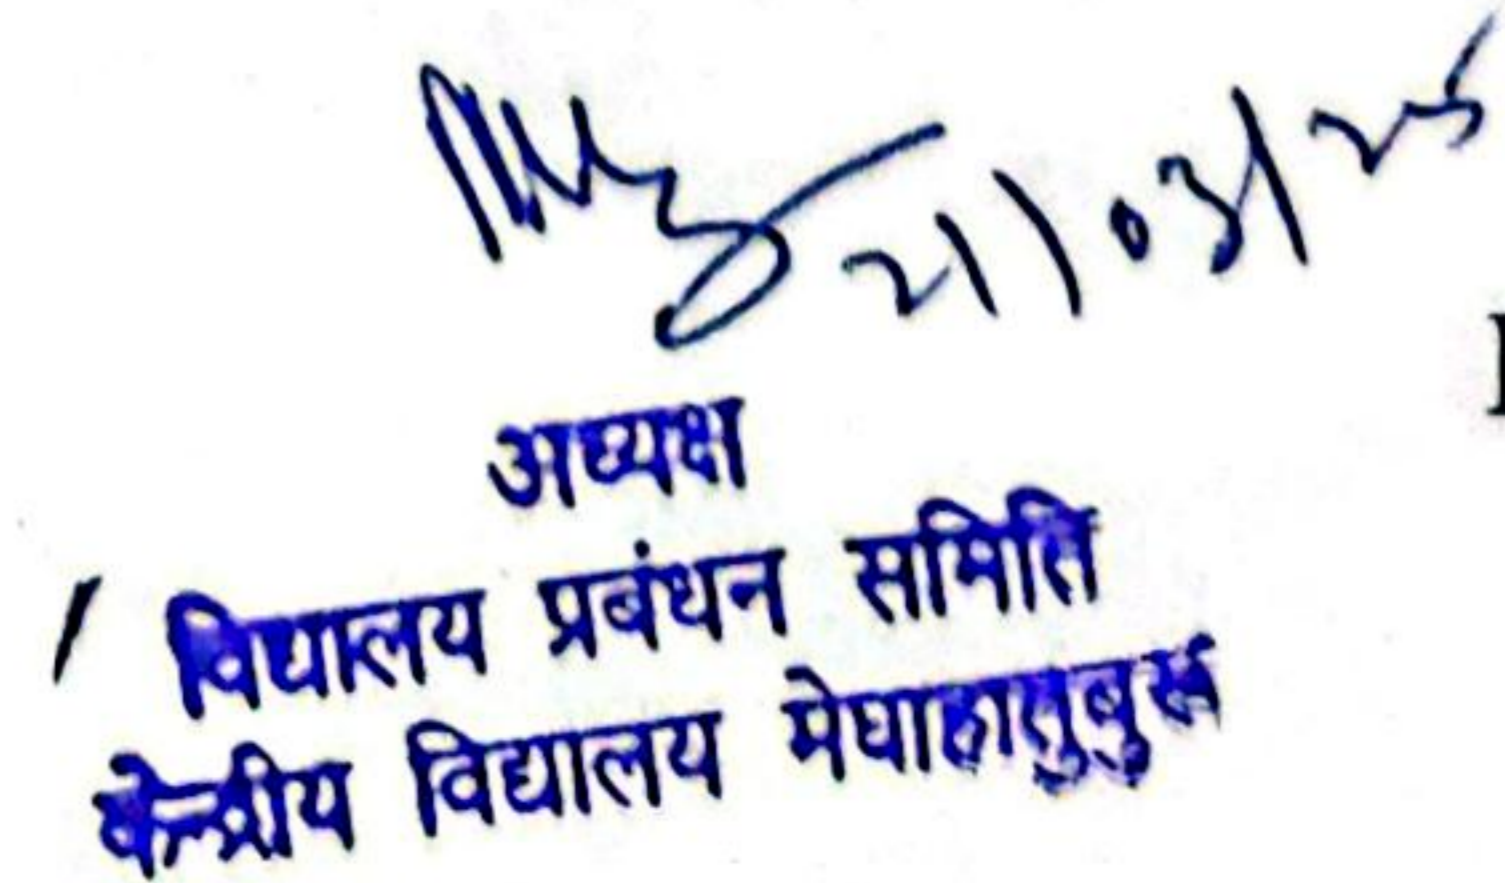 21/03/25
अध्यक्ष
विद्यालय प्रबंधन समिति
केन्द्रीय विद्यालय मेघाहातुबुरू